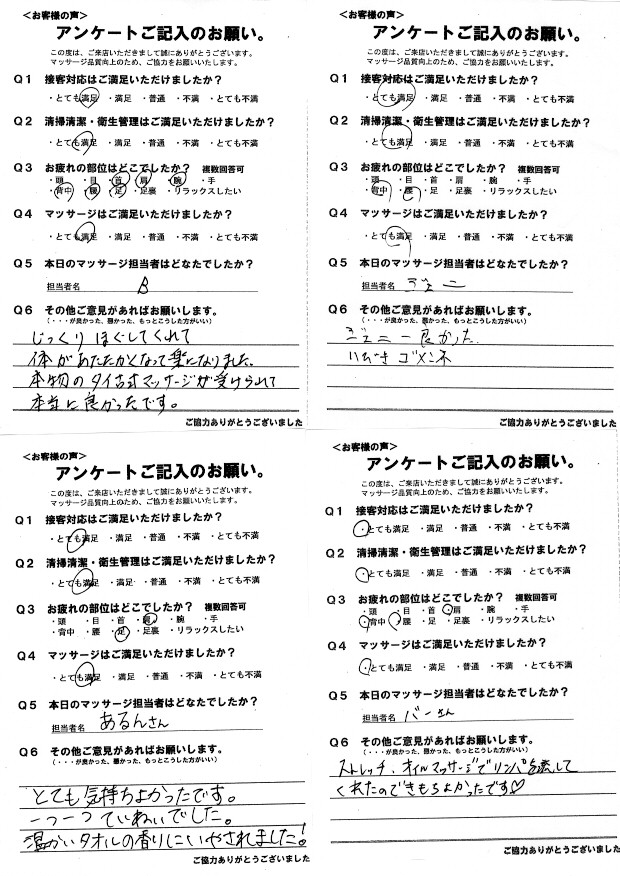 <お客様の声>
アンケートご記入のお願い。
この度は、ご来店いただきまして誠にありがとうございます。
マッサージ品質向上のため、ご協力をお願いいたします。
Q1 接客対応はご満足いただけましたか?
・とても満足 ・満足 ・普通 ・不満 ・とても不満
Q2 清掃清潔・衛生管理はご満足いただけますか?
・とても満足 ・満足 ・普通 ・不満 ・とても不満
Q3 お疲れの部位はどこでしたか? 複数回答可
・頭 ・目 ・首 ・肩 ・腕 ・手
・背中 ・腰 ・足 ・足裏 ・リラックスしたい
Q4 マッサージはご満足いただけますか?
・とても満足 ・満足 ・普通 ・不満 ・とても不満
Q5 本日のマッサージ担当者はどなたでしたか?
担当者名 B
Q6 その他ご意見があればお願いします。
(・・・が良かった、悪かった、もっとこうした方がいい)
じっくりほぐしてくれて
体があたたかくなって楽になりました。
本物のタイ古式マッサージが受けられて
本当に良かったです。
ご協力ありがとうございました
<お客様の声>
アンケートご記入のお願い。
この度は、ご来店いただきまして誠にありがとうございます。
マッサージ品質向上のため、ご協力をお願いいたします。
Q1 接客対応はご満足いただけましたか?
・とても満足 ・満足 ・普通 ・不満 ・とても不満
Q2 清掃清潔・衛生管理はご満足いただけますか?
・とても満足 ・満足 ・普通 ・不満 ・とても不満
Q3 お疲れの部位はどこでしたか? 複数回答可
・頭 ・目 ・首 ・肩 ・腕 ・手
・背中 ・腰 ・足 ・足裏 ・リラックスしたい
Q4 マッサージはご満足いただけますか?
・とても満足 ・満足 ・普通 ・不満 ・とても不満
Q5 本日のマッサージ担当者はどなたでしたか?
担当者名 ジェニー
Q6 その他ご意見があればお願いします。
(・・・が良かった、悪かった、もっとこうした方がいい)
ジェニー良かった.
いびきゴメンネ
ご協力ありがとうございました
<お客様の声>
アンケートご記入のお願い。
この度は、ご来店いただきまして誠にありがとうございます。
マッサージ品質向上のため、ご協力をお願いいたします。
Q1 接客対応はご満足いただけましたか?
・とても満足 ・満足 ・普通 ・不満 ・とても不満
Q2 清掃清潔・衛生管理はご満足いただけますか?
・とても満足 ・満足 ・普通 ・不満 ・とても不満
Q3 お疲れの部位はどこでしたか? 複数回答可
・頭 ・目 ・首 ・肩 ・腕 ・手
・背中 ・腰 ・足 ・足裏 ・リラックスしたい
Q4 マッサージはご満足いただけますか?
・とても満足 ・満足 ・普通 ・不満 ・とても不満
Q5 本日のマッサージ担当者はどなたでしたか?
担当者名 あるんさん
Q6 その他ご意見があればお願いします。
(・・・が良かった、悪かった、もっとこうした方がいい)
とても気持ちよかったです。
一つ一つていねいでした。
温かいタオルの香りにいやされました!
ご協力ありがとうございました
<お客様の声>
アンケートご記入のお願い。
この度は、ご来店いただきまして誠にありがとうございます。
マッサージ品質向上のため、ご協力をお願いいたします。
Q1 接客対応はご満足いただけましたか?
・とても満足 ・満足 ・普通 ・不満 ・とても不満
Q2 清掃清潔・衛生管理はご満足いただけますか?
・とても満足 ・満足 ・普通 ・不満 ・とても不満
Q3 お疲れの部位はどこでしたか? 複数回答可
・頭 ・目 ・首 ・肩 ・腕 ・手
・背中 ・腰 ・足 ・足裏 ・リラックスしたい
Q4 マッサージはご満足いただけますか?
・とても満足 ・満足 ・普通 ・不満 ・とても不満
Q5 本日のマッサージ担当者はどなたでしたか?
担当者名 バーさん
Q6 その他ご意見があればお願いします。
(・・・が良かった、悪かった、もっとこうした方がいい)
ストレッチ、オイルマッサージでリンパを流して
くれたのできもちよかったです♡
ご協力ありがとうございました